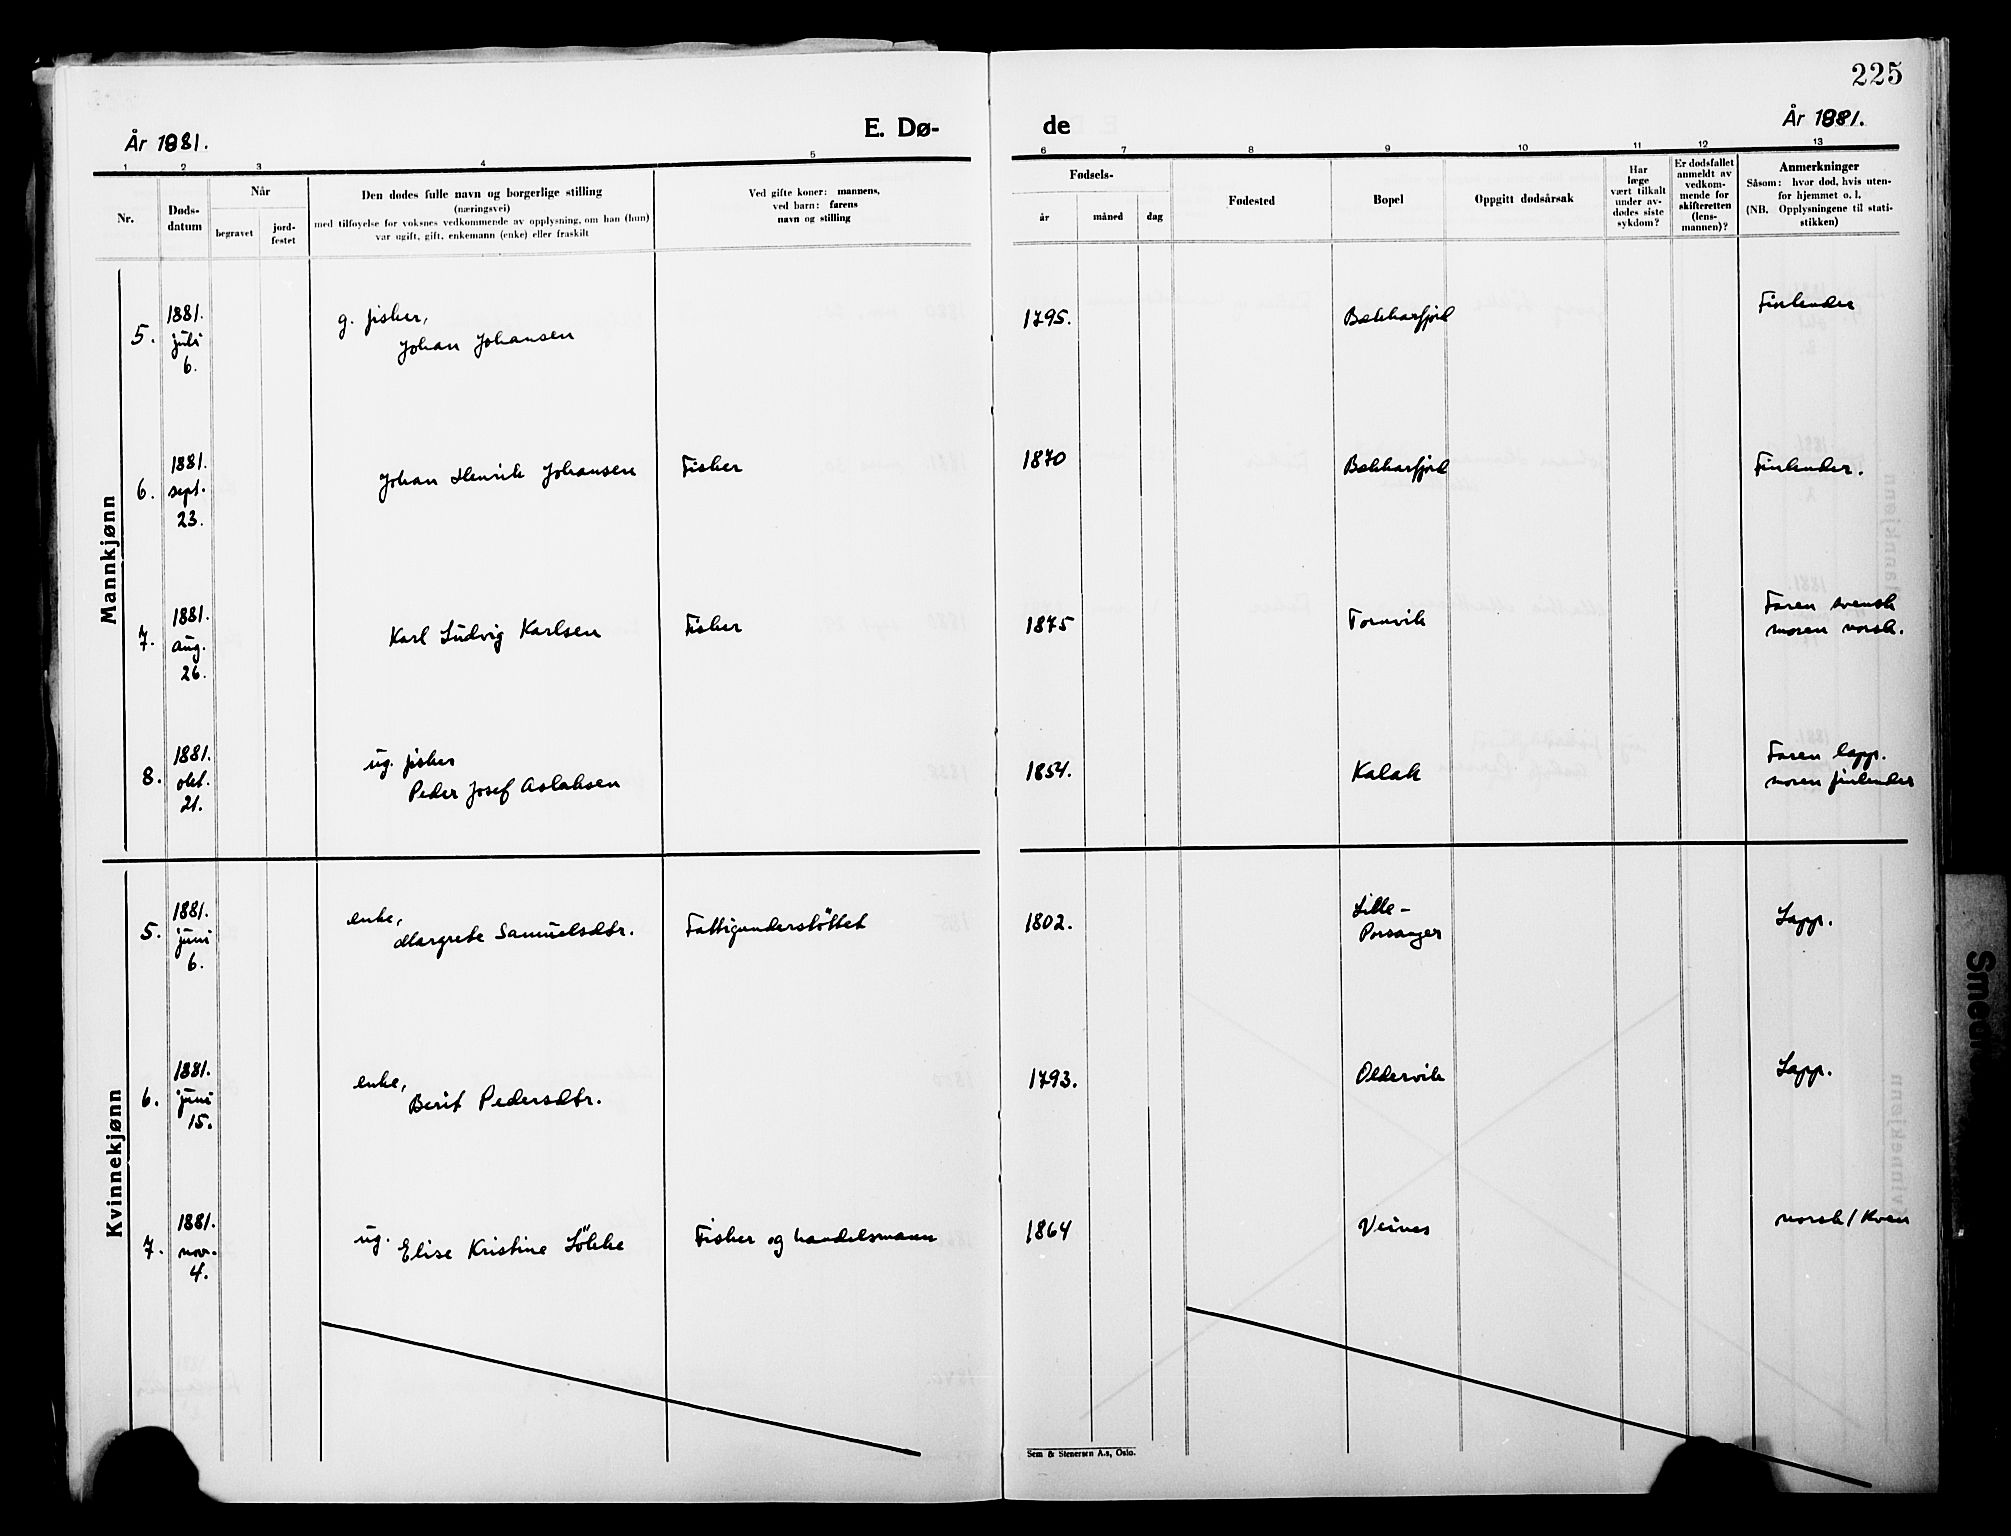 225
År 1881.
E. Dø-
de
År 1881.
1 2 3 4 5 6 7 8 9 10 11 12 13
Nr.
Døds-
datum
Når
begravet
jord-
festet
Den dødes fulle navn og borgerlige stilling
(næringsvei)
med tilføyelse for voksnes vedkommende av opplysning, om han (hun)
var ugift, gift, enkemann (enke) eller fraskilt
Ved gifte koner: mannens,
ved barn: farens
navn og stilling
Fødsels-
år
måned
dag
Fødested
Bopel
Oppgitt dødsårsak
Har
læge
vært tilkalt
under av-
dødes siste
sykdom?
Er dødsfallet
anmeldt av
vedkom-
mende for
skifteretten
(lens-
mannen)?
Anmerkninger
Såsom: hvor død, hvis uten-
for hjemmet o. l.
(NB. Opplysningene til stati-
stikken)
Mannkjønn
5.
1881.
juli
6.
g. fisker,
Johan Johansen
1795.
Bekkarfjord
Finlender
6.
1881.
sept.
23.
Johan Henrik Johansen
Fisker
1870
Bekkarfjord
Finlender.
7.
1881.
aug.
26.
Karl Ludvig Karlsen
Fisker
1875
Torvik
Faren svensk
moren norsk.
8.
1881.
okt.
21.
ug. fisker
Peder Josef Aslaksen
1854.
Kalak
Faren lapp.
moren finlender
Kvinnekjønn
5.
1881.
juni
6.
enke,
Margrete Samuelsdtr.
Fattigunderstöttet
1802.
Lille-
Porsanger
Lapp.
6.
1881.
juni
15.
enke,
Berit Pedersdtr.
1793.
Oldervik
Lapp.
7.
1881.
nov.
4.
ug.
Elise Kristine Lökke
Fisker og handelsmann
1864
Veines
norsk/Kven
Sem & Stenersen A.s, Oslo.